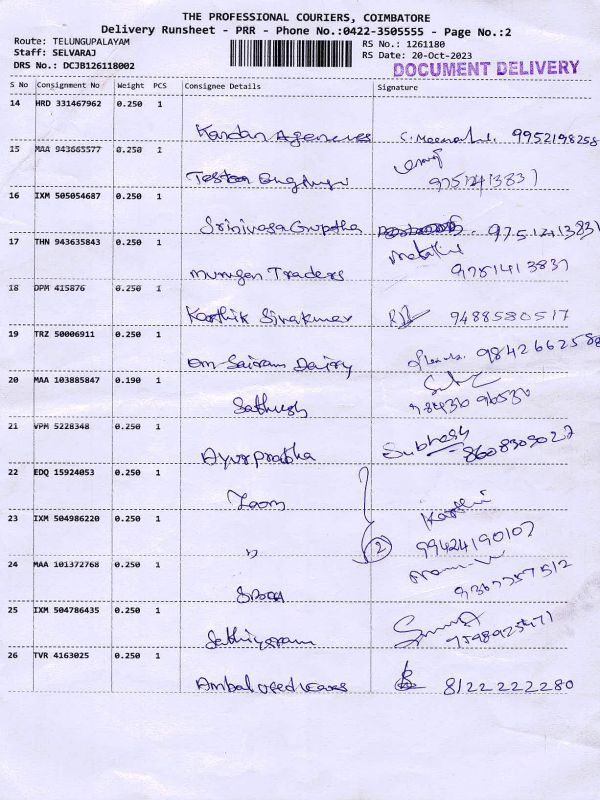 THE PROFESSIONAL COURIERS, COIMBATORE
Delivery Runsheet - PRR - Phone No.:0422-3505555 - Page No.:2
Route: TELUNGUPALAYAM
RS No.: 1261180
Staff: SELVARAJ
RS Date: 20-Oct-2023
DRS No.: DCJB126118002
DOCUMENT DELIVERY
S No Consignment No Weight PCS Consignee Details Signature
14 HRD 331467962 0.250 1
Kandan Agencies 9952198258
15 MAA 943665577 0.250 1
97512413831
16 IXM 505054687 0.250 1
Srinivasa Gruptha 9751241383)
17 THN 943635843 0.250 1
Murugan Traders 9751413831
18 DPM 415876 0.250 1
Karthik Sivakumar 9488580517
19 TRZ 50006911 0.250 1
Om Sairam Dairy 9842662588
20 MAA 103885847 0.190 1
Sathish
21 VPM 5228348 0.250 1
Ayurprabha Subhash 8608309027
22 EDQ 15924053 0.250 1
Zoom
23 IXM 504986220 0.250 1
" 2 Karthi 99424190107
24 MAA 101372768 0.250 1
25 IXM 504786435 0.250 1
Sathiyaram
26 TVR 4163025 0.250 1
Ambal used cars 8122222280